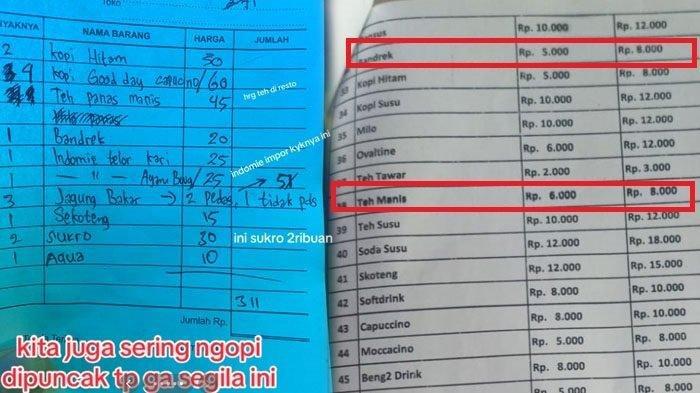 Toko
NYAKNYA NAMA BARANG HARGA JUMLAH
2 Kopi Hitam 30
4 Kopi Good day capucino/60
Teh panas manis 45
hrg teh di resto
1 Bandrek 20
1 Indomie telor kari 25
indomie impor kyknya ini
1 — 11 — Ayam Bawg/25 → 5X
3 Jagung Bakar → 2 Pedas, 1 tidak pds
1 Sekoteng 15
2 SUKRO 30
ini sukro 2ribuan
1 AQUA 10
311
Jumlah Rp.
kita juga sering ngopi
dipuncak tp ga segila ini
Rp. 10.000 Rp. 12.000
Bandrek Rp. 5.000 Rp. 8.000
33 Kopi Hitam Rp. 5.000 Rp. 8.000
34 Kopi Susu Rp. 10.000 Rp. 12.000
35 Milo Rp. 10.000 Rp. 12.000
36 Ovaltine Rp. 6.000 Rp. 12.000
Teh Tawar Rp. 2.000 Rp. 3.000
38 Teh Manis Rp. 6.000 Rp. 8.000
39 Teh Susu Rp. 10.000 Rp. 12.000
40 Soda Susu Rp. 12.000 Rp. 18.000
41 Skoteng Rp. 12.000 Rp. 15.000
42 Softdrink Rp. 8.000 Rp. 10.000
43 Capuccino Rp. 8.000 Rp. 12.000
44 Moccacino Rp. 8.000 Rp. 10.000
45 Beng2 Drink Rp. 8.000 Rp. 10.000
Rp. 5.000 Rp. 8.000